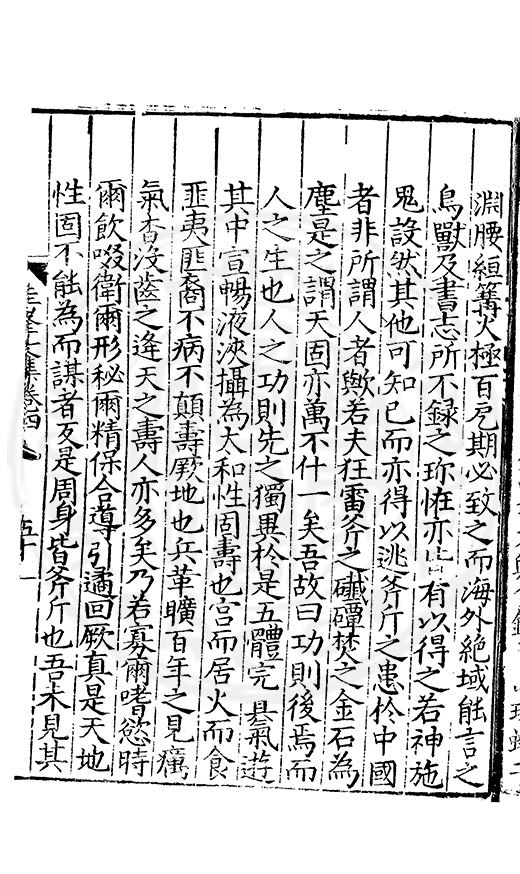 淵腰絙篝火極百危期必致之而海外絶域能言之
鳥獸及書志所不録之珎恠亦皆有以得之若神施
鬼設然其他可知已而亦得以逃斧斤之患扵中國
者非所謂人者歟若夫狂雷斧之礮磹焚之金石為
塵是之謂天固亦萬不什一矣吾故曰功則後焉而
人之生也人之功則先之獨異扵是五體完具氣遊
其中宣暢液浹攝為太和性固壽也宫而居火而食
匪夷匪裔不病不顛壽厥地也兵革曠百年之見癘
氣杳没齒之逄天之壽人亦多矣乃若寡爾嗜慾時
爾飲啜衛爾形秘爾精保合導引遹回厥真是天地
性固不能為而謀者反是周身皆斧斤也吾未見其
圭峯文集卷四
五十